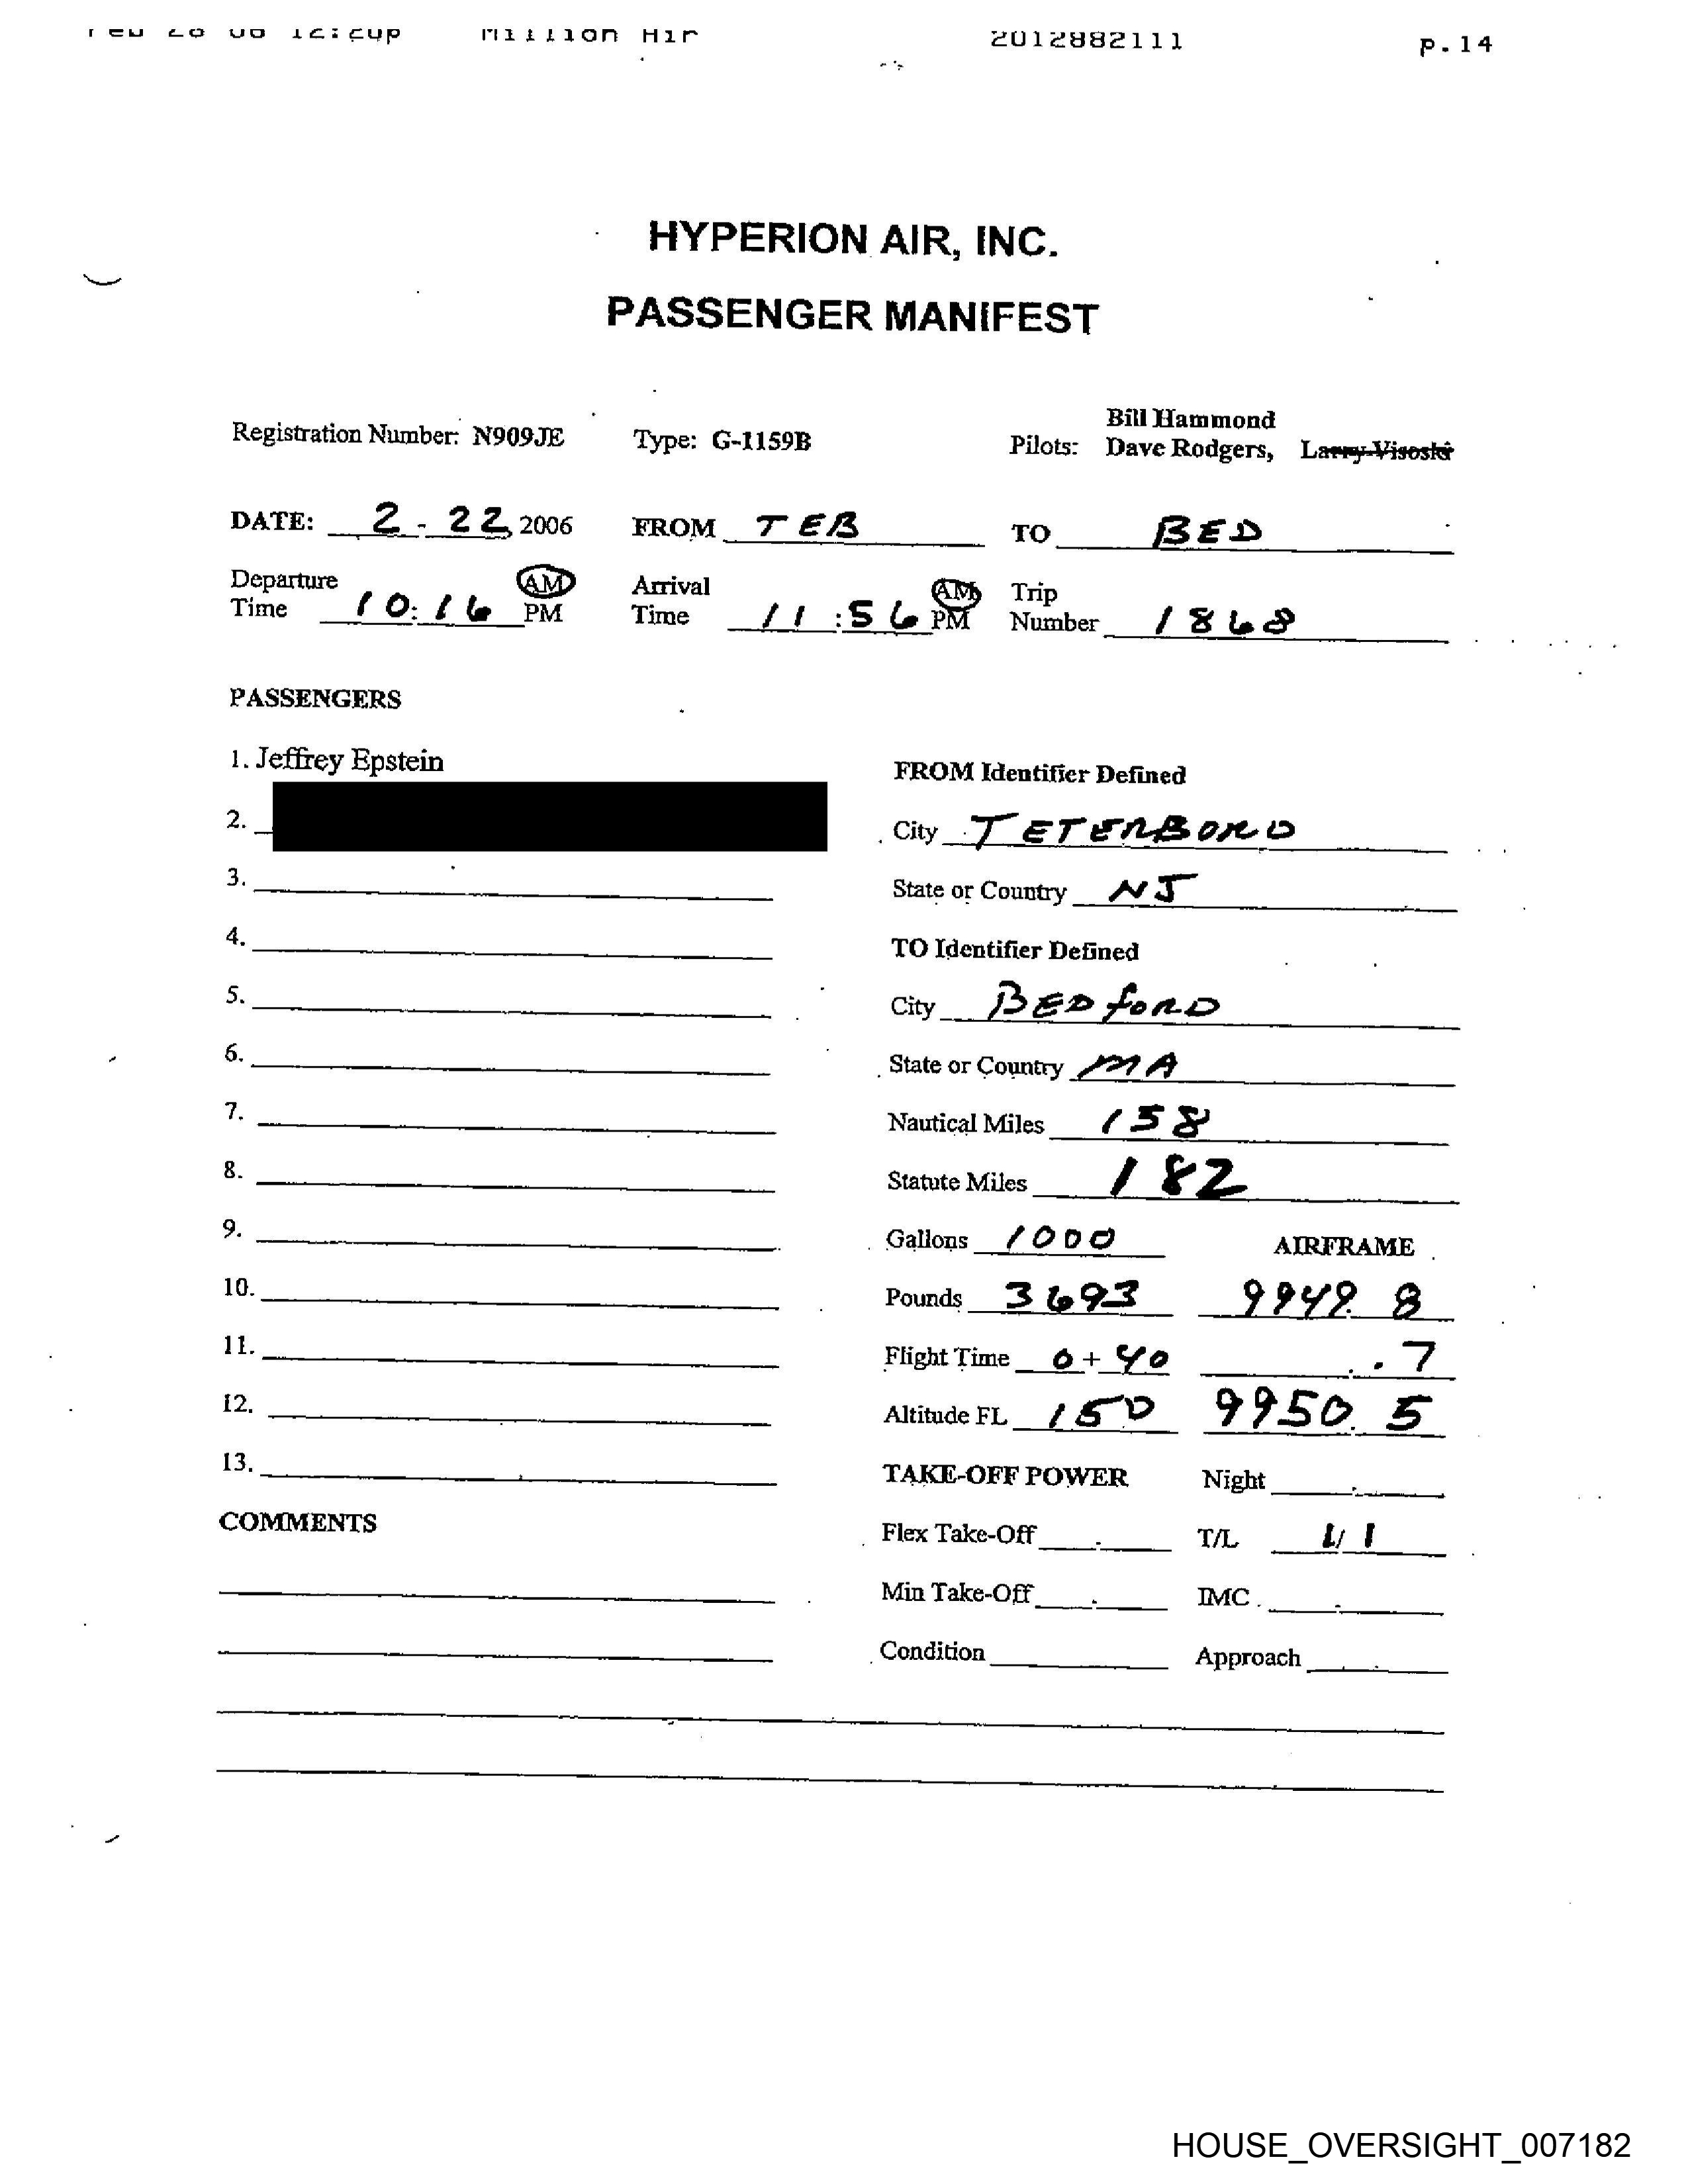 12:20p Million Air 2012882111 p.14
HYPERION AIR, INC.
PASSENGER MANIFEST
Bill Hammond
Registration Number: N909JE Type: G-1159B Pilots: Dave Rodgers, Larry Visoski
DATE: 2-22, 2006 FROM TEB TO BED
Departure AM Arrival AM Trip
Time 10:16 PM Time 11:56 PM Number 1868
PASSENGERS
1. Jeffrey Epstein
FROM Identifier Defined
2.
City TETERBORO
3.
State or Country NJ
4.
TO Identifier Defined
5.
City BEDFORD
6.
State or Country MA
7.
Nautical Miles 158
8.
Statute Miles 182
9.
Gallons 1000 AIRFRAME
10.
Pounds 3693 9949.8
11.
Flight Time 0+40 .7
12.
Altitude FL 150 9950.5
13.
TAKE-OFF POWER Night
COMMENTS
Flex Take-Off T/L 1/1
Min Take-Off IMC
Condition Approach
HOUSE_OVERSIGHT_007182